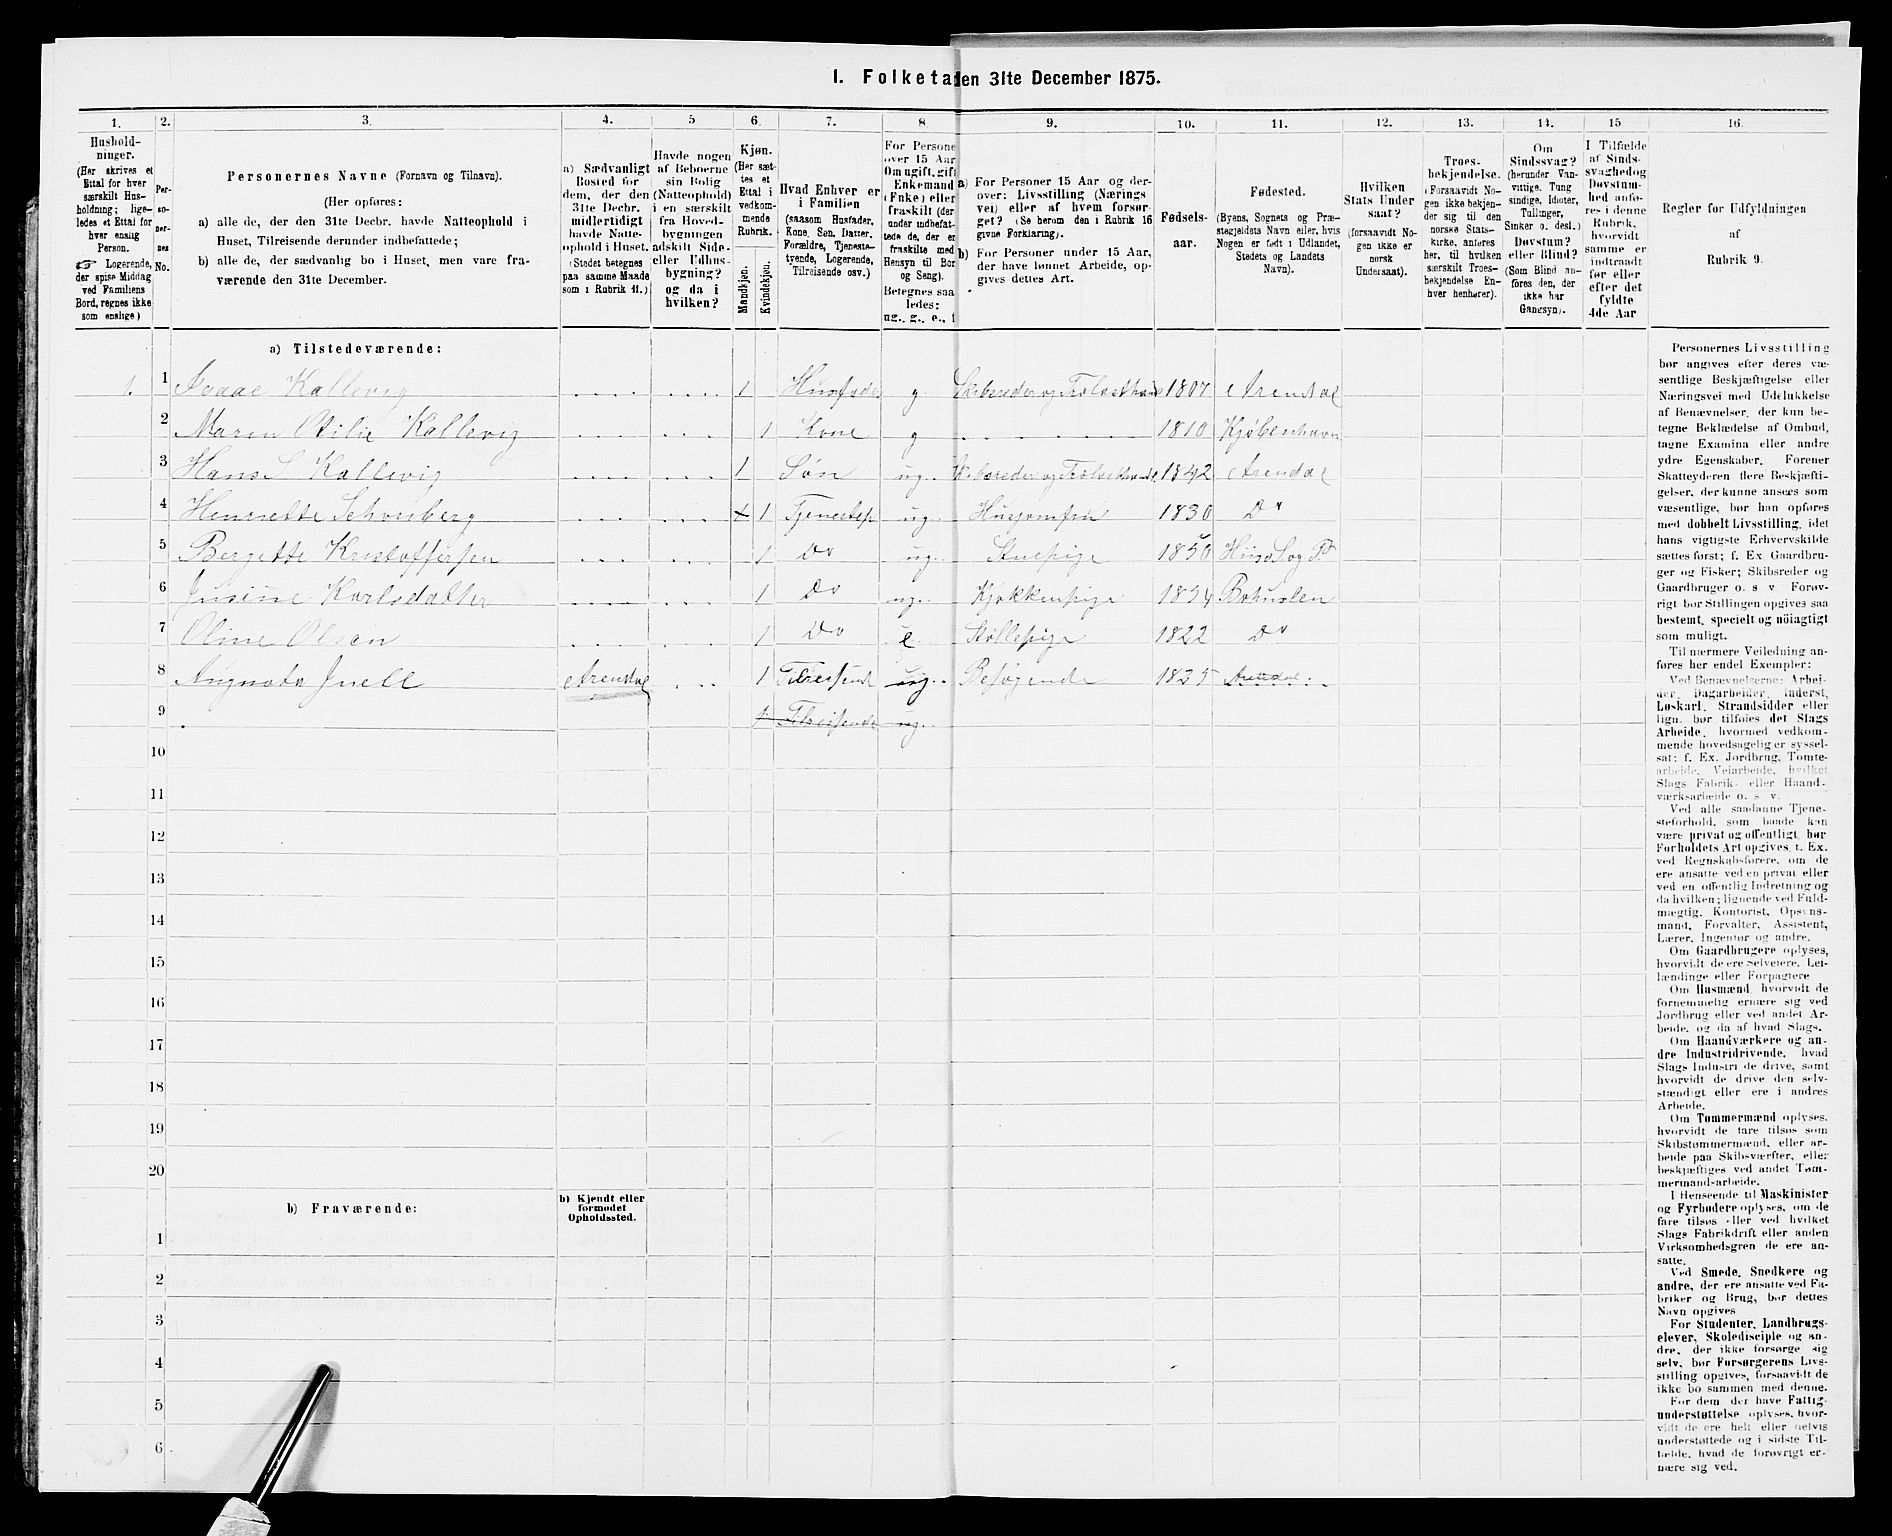 1. Folketa
den 31te December 1875.
1.
2.
3.
4.
5
6.
7.
8
9.
10.
11.
12.
13.
14.
15
16.
Hushold-
ninger.
(Her skrives et
Ettal for hver
særskilt Hus-
holdning; lige-
ledes et Ettal for
hver enslig
Person.
Logerende,
der spise Middag
ved Familiens
Bord, regnes ikke
som enslige)
Per-
so-
ner-
nes
No.
Personernes Navne (Fornavn og Tilnavn).
(Her opføres:
a) alle de, der den 31te Decbr. havde Natteophold i
Huset, Tilreisende derunder indbefattede;
b) alle de, der sædvanlig bo i Huset, men vare fra-
værende den 31te December.
a) Sædvanligt
Bosted for
dem, der den
31te Decbr.
midlertidigt
havde Natte-
ophold i Huset.
(Stedet betegnes
paa samme Maade
som i Rubrik 11.)
Havde nogen
af Beboerne
sin Bolig
(Natteophold)
i en særskilt
fra Hoved-
bygningen
adskilt Side-
eller Udhus-
bygning?
og da i
hvilken?
Kjøn.
(Her sæt-
tes et
Ettal i
vedkom-
mende
Rubrik.
Mandkjøn.
Kvindekjøn.
Hvad Enhver er
i Familien
(saasom Husfader,
Kone, Søn, Datter,
Forældre, Tjeneste-
tyende, Logerende,
Tilreisende osv.)
For Persone
over 15 Aar
Om ugift, gift
Enkemand
(Enke) eller
fraskilt (der
under indbefat-
tede de, der er
fraskilte med
Hensyn til Bor
og Seng).
Betegnes saa
ledes:
ug., g., e., f
a) For Personer 15 Aar og der-
over: Livsstilling (Nærings
vei) eller af hvem forsør-
get? (Se herom den i Rubrik 16
givne Forklaring).
b) For Personer under 15 Aar,
der have lønnet Arbeide, op-
gives dettes Art.
Fødsels-
aar.
Fødested.
(Byens, Sognets og Præ-
stegjeldets Navn eller, hvis
Nogen er født i Udlandet,
Stedets og Landets
Navn).
Hvilken
Stats Under
saat?
(forsaavidt No-
gen ikke er
norsk
Undersaat).
Troes-
bekjendelse.
(Forsaavidt No-
gen ikke bekjen-
der sig til den
norske Stats-
kirke, anføres
her, til hvilken
særskilt Troes-
bekjendelse En-
hver henhører).
Om
Sindssvag?
(herunder Van-
vittige, Tung
sindige, Idioter,
Tullinger,
Sinker o. desl.)
Døvstum?
eller Blind?
(Som Blind an-
føres den, der
ikke har
Gangsyn).
I Tilfælde
af Sinds-
svaghedog
Døvstum-
hed anfø-
res i denne
Rubrik,
hvorvidt
samme er
indtraadt
før eller
efter det
fyldte
4de Aar
Regler for Udfyldningen
af
Rubrik 9.
a) Tilstedeværende:
1. 1 Isaac Kallevig 1 Husfader g. Skibsreder og Trælasthand 1807 Arendal
2 Maren Otilie Kallevig 1 Kone g 1810 Kjøbenhavn
3 Hans S Kallevig 1 Søn ug.. Skibsreder og Trælasthandl. 1842 Arendal
4 Henriette Schouberg 1 Tjenestep ug. Husjomfru 1830 Do
5 Bergette Kristoffersen 1 Do ug. Stuepige 1850 Hiis S og P
6 Jusine Karlsdatter 1 Do ug.. Kjøkkenpige 1854 Bohuslen
7 Oline Olsen 1 Do e. 1822 Do
8 Augusta Juell Arendal 1 Tilreisende ug.. Besøgende 1835 Arendal
9 1 Tilreisende ug.
10
11
12
13
14
15
16
17
18
19
20
b) Fraværende:
b) Kjendt eller
formodet
Opholdssted.
1
2
3
4
5
6
Personernes Livsstilling
bør angives efter deres væ-
sentlige Beskjæftigelse eller
Næringsvei med Udelukkelse
af Benævnelser, der kun be-
tegne Beklædelse af Ombud,
tagne Examina eller andre
ydre Egenskaber. Forener
Skatteyderen flere Beskjæfti-
gelser, der kunne ansees som
væsentlige, bør han opføres
med dobbelt Livsstilling, idet
hans vigtigste Erhvervskilde
sættes først; f. Ex Gaardbru-
ger og Fisker; Skibsreder og
Gaardbruger o. s v Forøv-
rigt bør Stillingen opgives saa
bestemt, specielt og nöiagtigt
som muligt.
Til nærmere Veiledning an-
føres her endel Exempler:
Ved Benævnelserne: Arbei-
der, Dagarbeider, Inderst,
Løskarl, Strandsidder eller
lign. bør tilføies det Slags
Arbeide, hvormed vedkom-
mende hovedsagelig er syssel-
sat; f. Ex. Jordbrug, Tomte-
arbeide, Veiarbeide, hvilket
Slags Fabrik- eller Haand-
værksarbeide o. s v.
Ved alle saadanne Tjene-
steforhold, som baade kan
være privat og offentligt, bør
Forholdets Art opgives, t. Ex.
ved Regnskabsførere, om de
ere ansatte ved en privat eller
ved en offentlig Indretning og
da hvilken; lignende ved Fuld-
mægtig, Kontorist, Opsyns-
mand, Forvalter, Assistent,
Lærer, Ingeniør og andre.
Om Gaardbrugere oplyses,
hvorvidt de ere Selveiere, Lei-
lændinge eller Forpagtere
Om Husmænd, hvorvidt de
fornemmelig ernære sig ved
Jordbrug eller ved andet Ar-
beide, og da af hvad Slags.
Om Haandværkere og an-
dre Industridrivende, hvad
Slags Industri de drive, samt
hvorvidt de drive den selv-
stændigt eller ere i andres
Arbeide.
Om Tømmermænd oplyses,
hvorvidt de fare tilsøs som
Skibstømmermænd, eller ar-
beide paa Skibsværfter, eller
beskjæftiges ved andet Tøm-
mermand-arbeide.
I Henseende til Maskinister
og Fyrbødere oplyses, om de
fare tilsøs eller ved hvilket
Slags Fabrikdrift eller anden
Virksomhedsgren de ere an-
satte.
Ved Smede, Snedkere og
andre, der ere ansatte ved Fa-
briker og Brug, bør dettes
Navn opgives
For Studenter, Landbrugs-
elever, Skoledisciple og an-
dre, der ikke forsørge sig
selv, bør Forsørgerens Livs-
stilling opgives, forsaavidt de
ikke bo sammen med denne.
For dem, der have Fattig-
understøttelse oplyses, hvor-
vidt de ere helt eller delvis
understøttede og i sidste Til-
fælde, hvad de forøvrigt er-
nære sig ved.